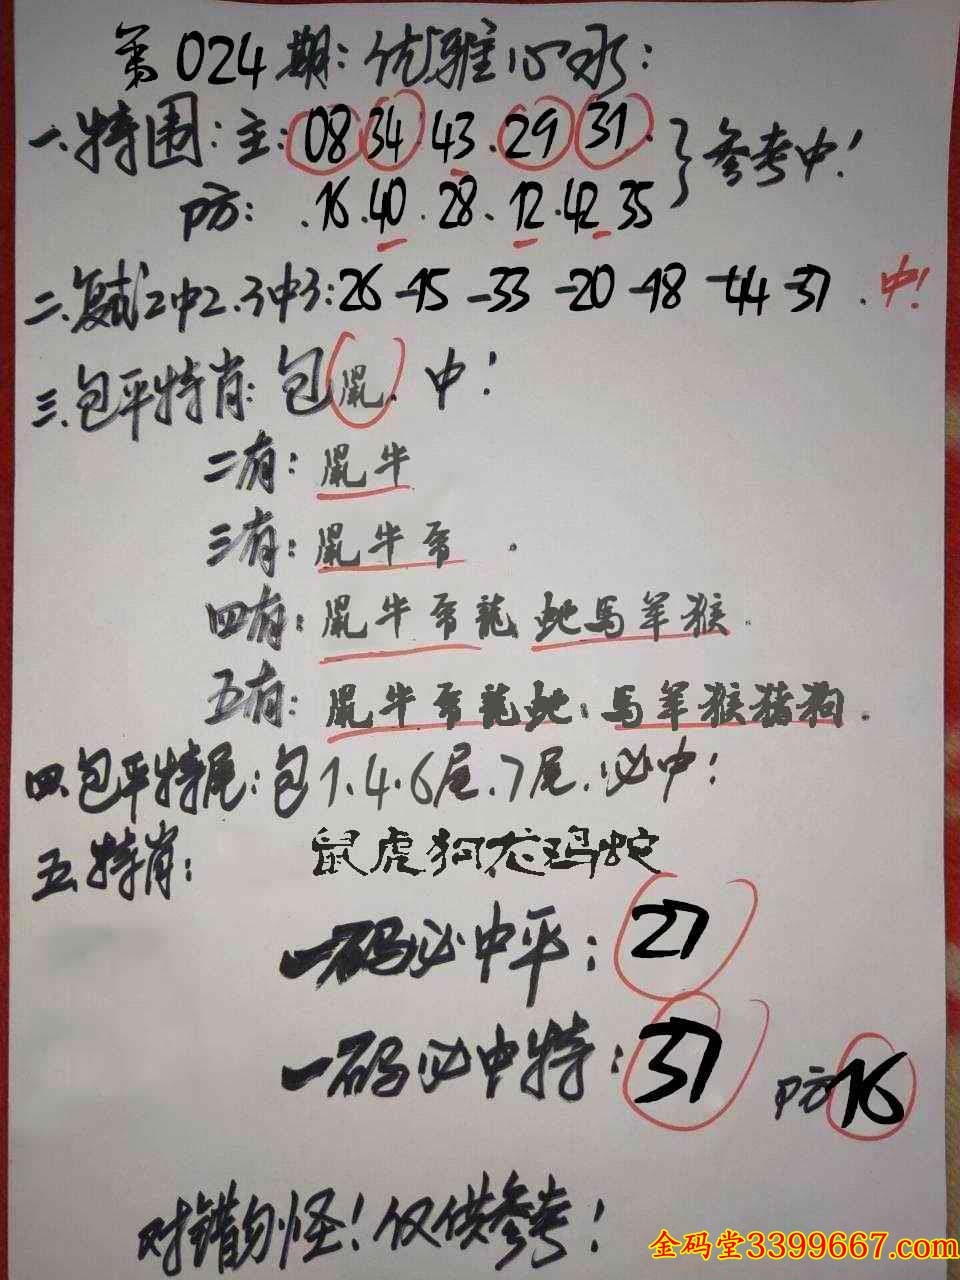 第024期:优雅心水:
一.特围:主:08 34.43.29 31.
防:.16.40.28.12.42 35 } 参考中!
二.复式2中2.3中3:26-15-33-20-18-44-37.中!
三.包平特肖:包鼠.中!
二有:鼠牛
三有:鼠牛帝.
四有:鼠牛帝龍 蛇馬羊猴.
五有:鼠牛帝龍蛇:馬羊猴猪狗.
四.包平特尾:包1.4.6尾.7尾.必中!
五.特肖: 鼠虎狗龙鸡蛇
一码必中平:27
一码必中特:37 防16
对错勿怪!仅供参考!
金码堂3399667.com